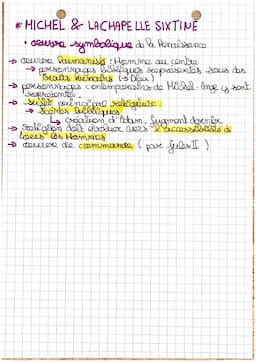 * MICHEL & LA CHAPELLE SIXTINE
• œuvre symbolique de la Renaissance
→ œuvre humaniste : Homme au centre
→ personnages bibliques représentés sous des
traits humains (→ Dieu)
→ personnages contemporains de Michel-Ange y sont
représentés.
→ sujet principal religieux
→ scènes bibliques
↳ création d'Adam, jugement dernier
→ réalisation doit
l'accessibilité de
tous les Hommes
→ œuvre de commande (par Jules II)